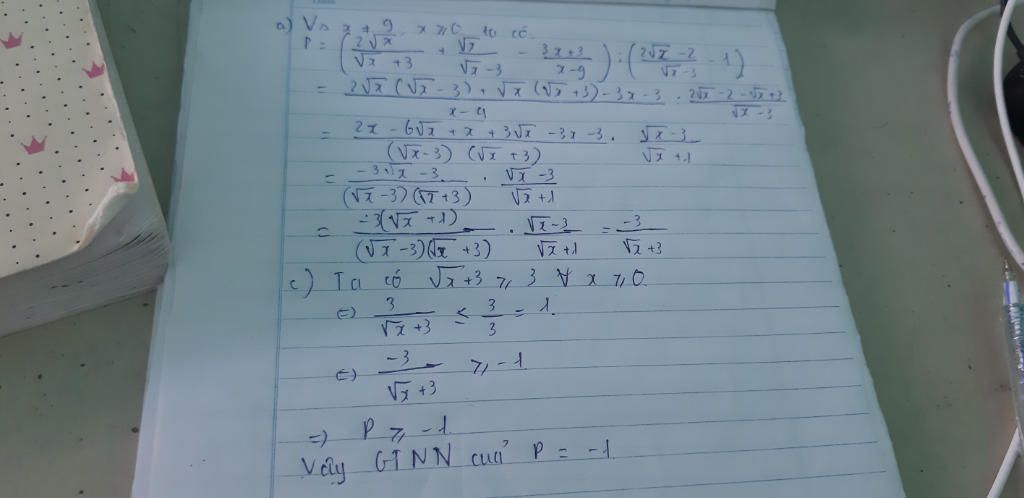 a) Vs x ≠ 9, x ≥ 0 ta có
P = (2√x/(√x + 3) + √x/(√x - 3) - (3x + 3)/(x - 9)) : ((2√x - 2)/(√x - 3) - 1)
= (2√x(√x - 3) + √x(√x + 3) - 3x - 3)/(x - 9) : (2√x - 2 - √x + 3)/(√x - 3)
= (2x - 6√x + x + 3√x - 3x - 3)/((√x - 3)(√x + 3)) . (√x - 3)/(√x + 1)
= (-3√x - 3)/((√x - 3)(√x + 3)) . (√x - 3)/(√x + 1)
= -3(√x + 1)/((√x - 3)(√x + 3)) . (√x - 3)/(√x + 1) = -3/(√x + 3)
c) Ta có √x + 3 ≥ 3 ∀ x ≥ 0.
⇔ 3/(√x + 3) ≤ 3/3 = 1.
⇔ -3/(√x + 3) ≥ -1
⇒ P ≥ -1
Vậy GTNN của P = -1